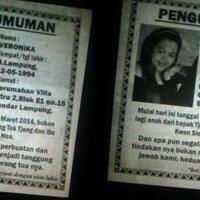 UMUMAN
Nama :
VERONIKA
Tempat/tgl lahir :
B.Lampung,
2-05-1994
Perumahan Villa
tra 2,Blok E1 no.15
ndar Lampung,
Maret 2014, bukan
ng Tek Tjeng dan ibu
Hoa.
perbuatan dan
enjadi tanggung
rang tua nya.
PENGU
Mulai hari ini tanggal
lagi anak dari bapak Tj
Kwan Sio
Dan apa pun segal
tindakan nya bukan
jawab kami, kedua